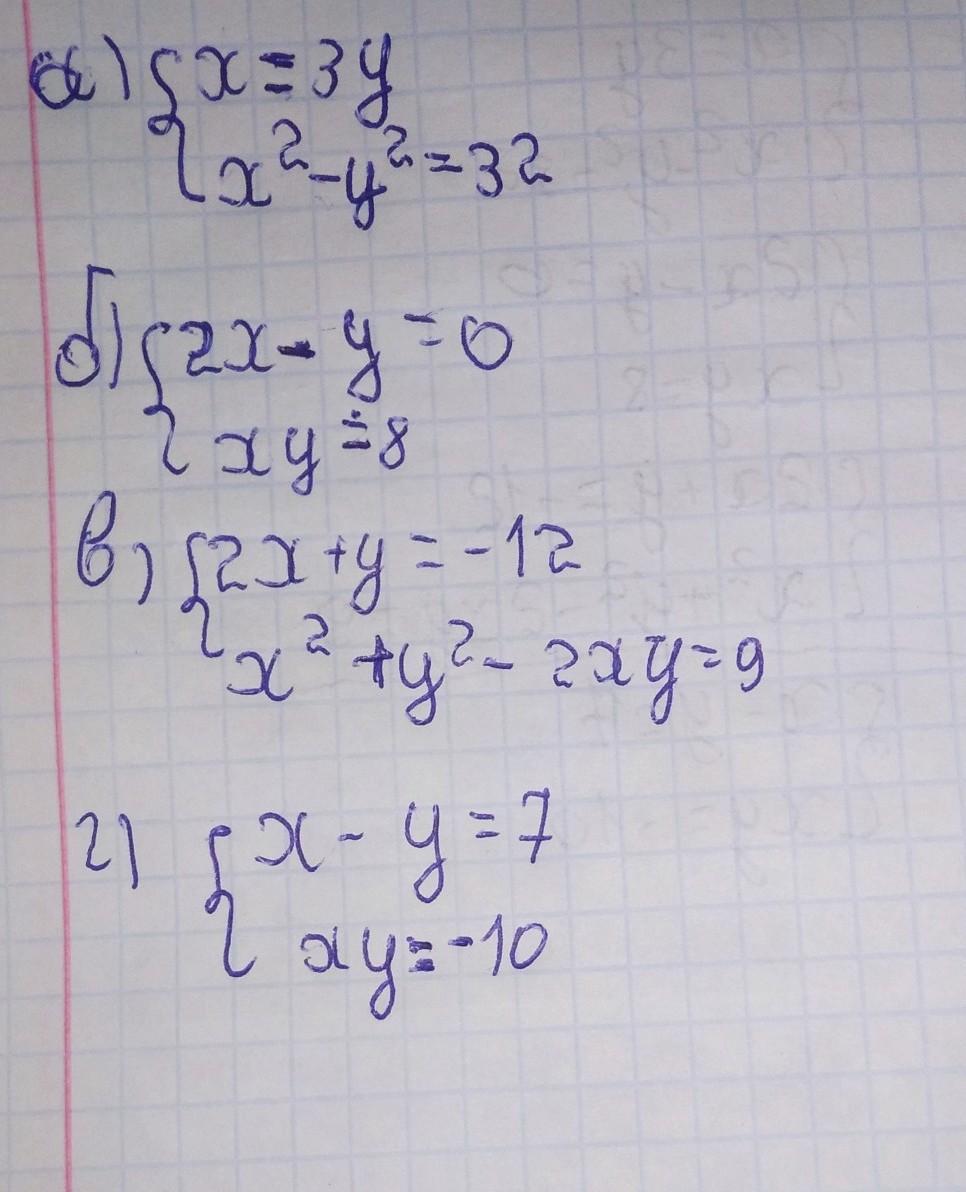 а) { x = 3y
x² - y² = 32
б) { 2x - y = 0
xy = 8
в) { 2x + y = -12
x² + y² - 2xy = 9
г) { x - y = 7
xy = -10